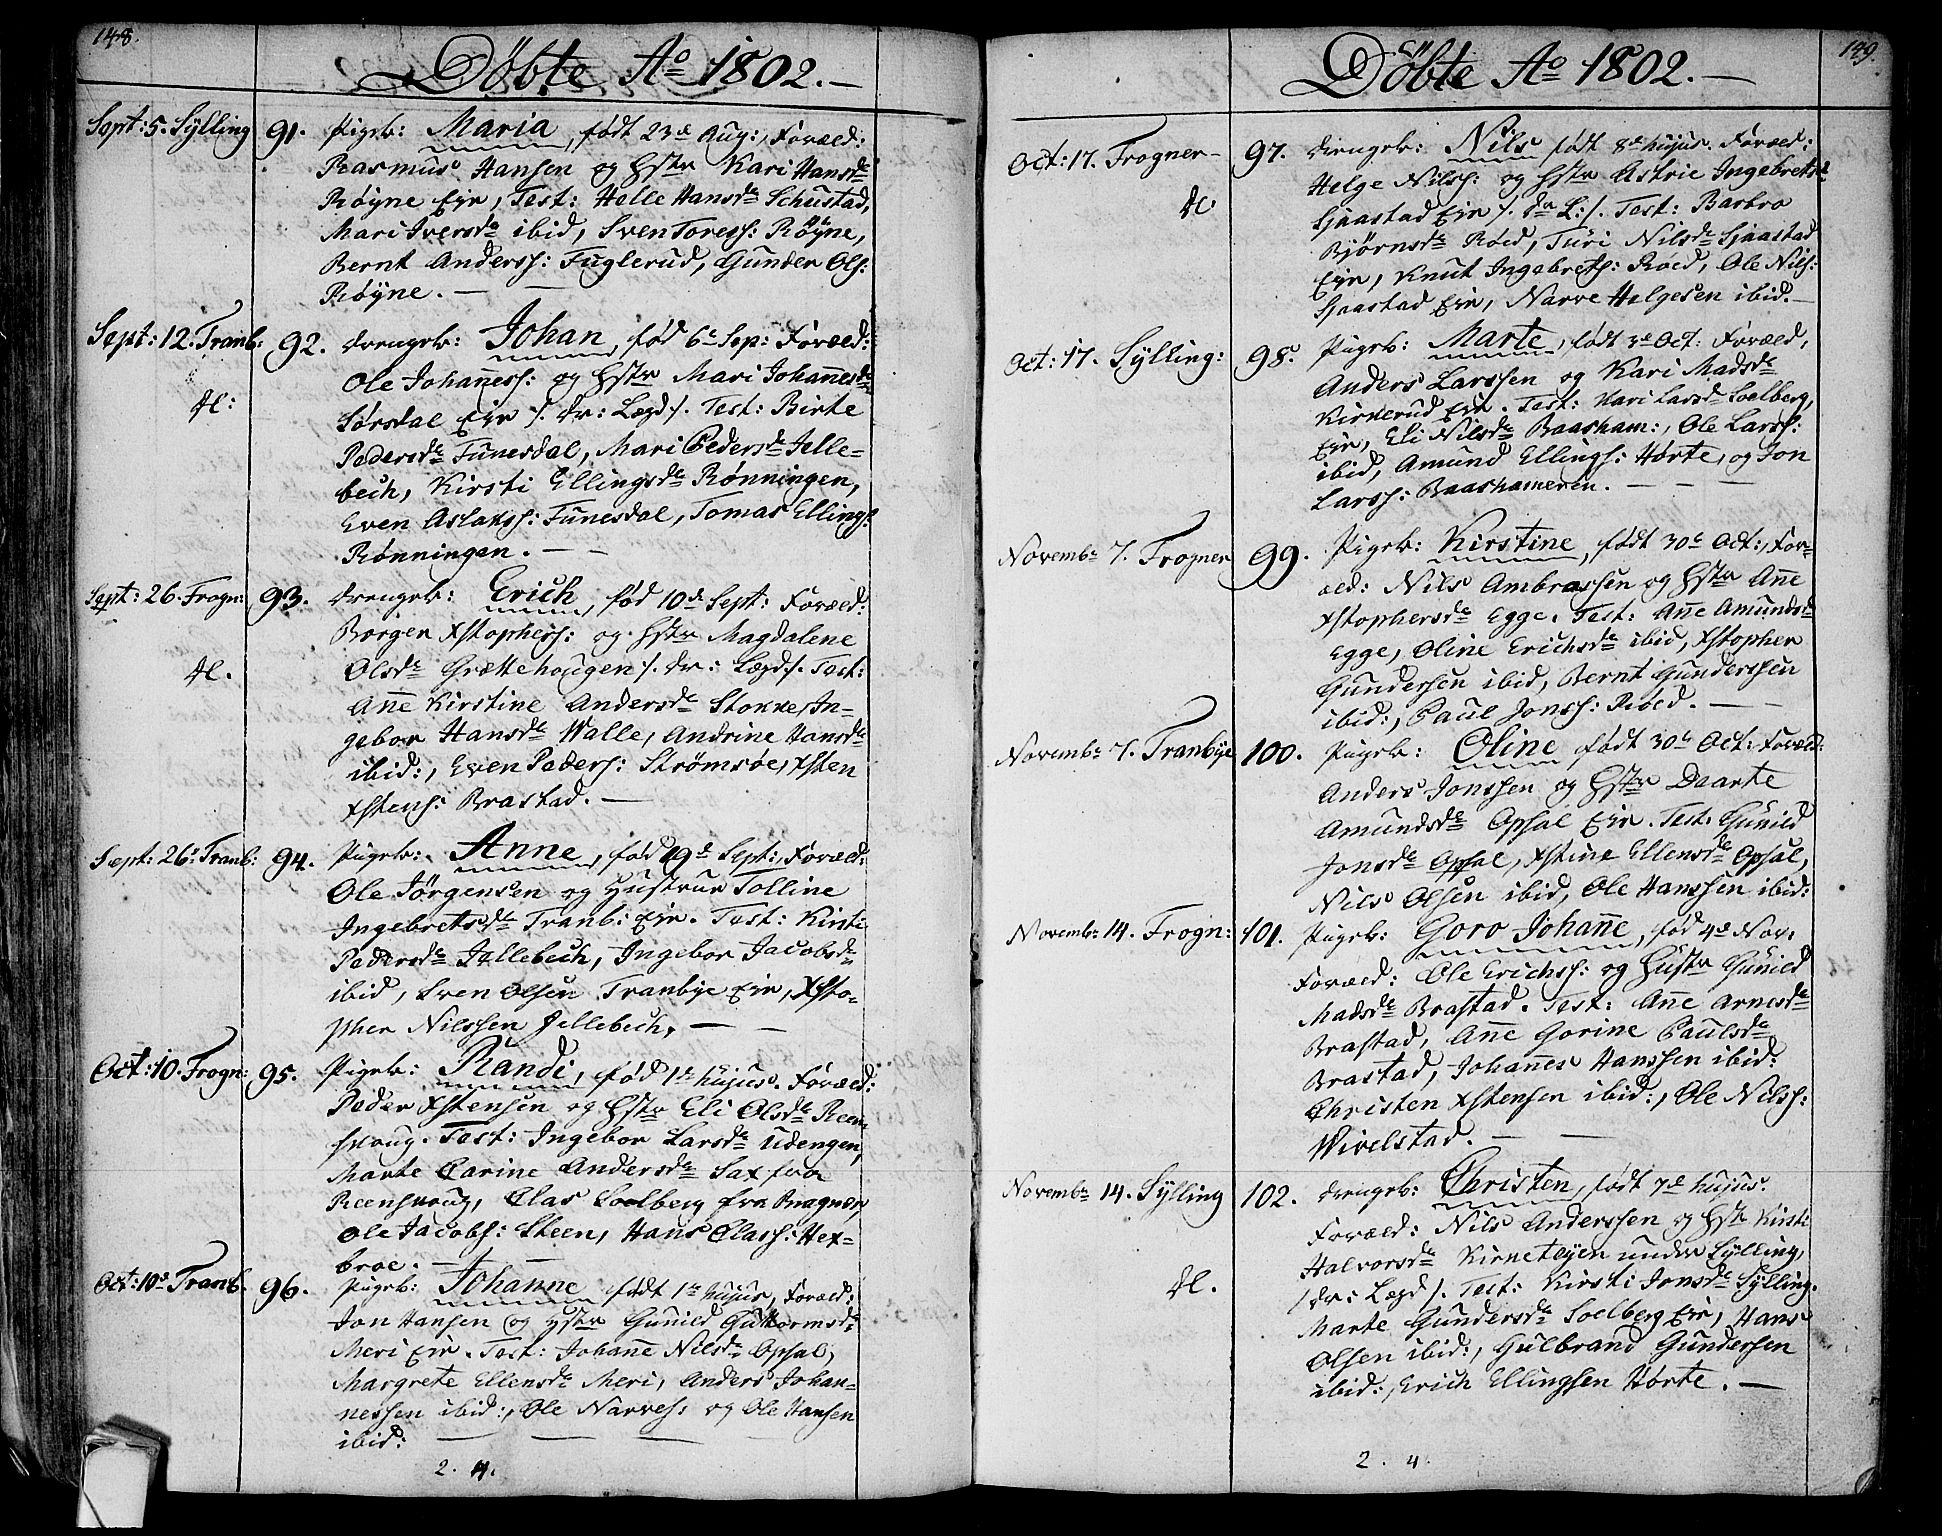 148.
Döbte Aº 1802.
Sept: 5. Sÿlling 91. Pigeb: Maria, født 23de Aug:, Foræld:
Rasmus Hansen og Hstr Kari Hansdr
Røÿne Eir, Test: Helle Hansdr Schustad,
Mari Iversdr ibid, Sven Toress: Røÿne,
Bernt Anderss: Fuglerud, Gunder Ols:
Røÿne.
Sept: 12. Tranb: 92. Drengeb: Johan, fød 6te Sep: Foræld:
Ole Johaness: og Hstr Mari Johanesdr
Sørsdal Eir /. Dr: Lægd /. Test: Birte
Pedersdr Funesdal, Mari Pedersdr Jelle-
bech, Kirsti Ellingsdr Rønningen,
Even Aslakss: Funesdal, Tomas Ellings:
Rønningen.
Sept: 26. Frogn: 93. Drengeb: Erich, fød 10de Sept: Foræld:
Borger Xstophers: og Hstr Magdalene
Olsdr Grættehougen /. Dr: Lægd /. Test:
Anne Kirstine Andersdr Stokke, In-
gebor Hansdr Walle, Andrine Hansdr
ibid:, Even Peders: Strømsøe, Xsten
Xstens: Brastad.
Sept: 26. Tranb: 94. Pigeb: Anne, fød 19de Sept:, Foræld:
Ole Jörgensen og Hustrue Tolline
Ingebretsdr Tranb: Eir. Test: Kirsti
Pedersdr Jellebech, Ingebor Jacobsdr
ibid, Sven Olsen Tranbÿe Eir, Xsto-
pher Nilssen Jellebech,
Oct: 10. Frogn: 95. Pigeb: Randi, fød 1te hujus. Foræld:
Peder Xstensen og Hstr Eli Olsdr Reen-
skoug. Test: Ingebor Larsdr Udengen,
Marte Carine Andersdr Sax fra
Reenskoug, Clas Solberg fra Bragnes,
Ole Jacobs: Steen, Hans Class: Hex-
broe.
Oct: 10. Tranb. 96. Pigeb: Johanne født 1te hujus, Foræld:
Jon Hansen og Hstr Gunild Guttormsdr
Meri Eir. Test: Johane Nilsdr Opsal,
Margrete Ellensdr Meri, Anders Johan-
nessen ibid:, Ole Narves: og Ole Hansen
ibid:
2. 4.
149.
Döbte Aº 1802.
Oct: 17. Frogner 97. Drengeb: Nils født 8de hujus. Foræld:
Helge Nilss: og Hstr Astrie Ingebretsdr
Sjaastad Eir /. Dr L: /. Test: Barbro
Bjørnsdr Røed, Turi Nilsdr Sjaastad
Eir, Knut Ingebrets: Røed, Ole Nils:
Sjaastad Eir, Narve Helgesen ibid.
Oct: 17. Sÿlling: 98. Pigeb: Marte, født 3de Oct: Foræld,
Anders Larssen og Kari Madsdr
Kirkerud Eir. Test: Kari Larsdr Soelberg,
Eir, Eli Nilsdr Baasham:, Ole Larss:
ibid, Amund Ellings: Hørte, og Jon
Larss: Baashameren.
Novembr 7. Frogner 99. Pigeb: Kirstine, født 30te Oct:, For-
æld: Nils Ambrassen og Hstr Anne
Xstophersdr Egge. Test: Ane Amundsdr
Egge, Oline Erichsdr ibid, Xstopher
Gundersen ibid, Bernt Gunderssen
ibid:, Paul Jonss: Røed.
Novembr 7. Tranbÿe 100. Pigeb: Oline født 30te Oct: Foræld:
Anders Jonssen og Hstr Daarte
Amundsdr Opsal Eir. Test: Gunild
Jonsdr Opsal, Xstine Ellensdr Opsal,
Nils Olsen ibid, Ole Hanssen ibid:
Novembr 14. Frogn: 101. Pigeb: Goro Johane, fød 4de Nov:
Foræld: Ole Erichss: og Hustr Gunild
Madsdr Brastad. Test: Ane Arnesdr
Brastad, Ane Gorine Paulsdr
Brastad, Johanes Hanssen ibid:
Christen Xstensen ibid:, Ole Nilss:
Wivelstad.
Novembr 14. Sÿlling 102. Drengeb: Christen, født 7de hujus.
Foræld: Nils Anderssen og Hstr Kirsti
Halvorsdr Kirketeÿen under Sÿlling,
/ Dr: Lægd /. Test: Kirsti Jonsdr Sÿlling.
Marte Gundersdr Soelberg Eir, Hans
Olsen ibid:, Gulbrand Gundersen
ibid:, Erich Ellingsen Hørte.
2. 4.